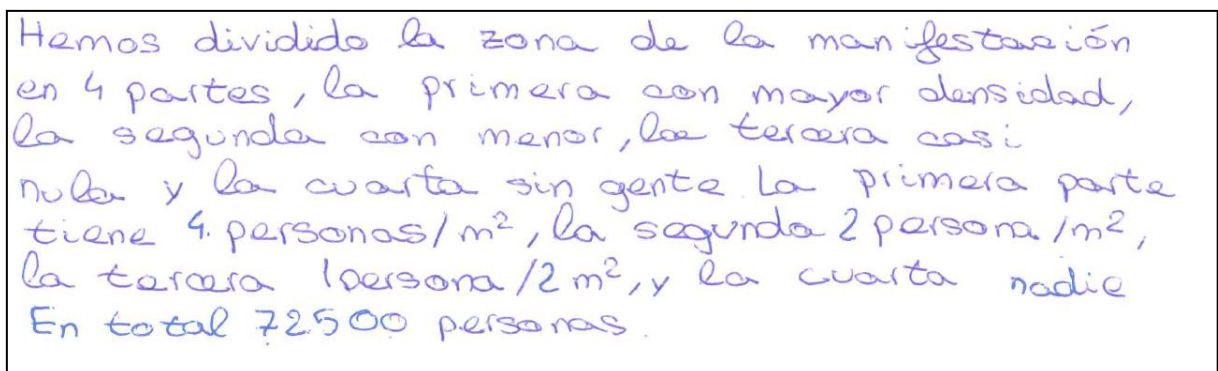 Hemos dividido la zona de la manifestación
en 4 partes, la primera con mayor densidad,
la segunda con menor, la tercera casi
nula y la cuarta sin gente. La primera parte
tiene 4. personas/m², la segunda 2 persona/m²,
la tercera 1persona/2 m², y la cuarta nadie
En total 72500 personas.